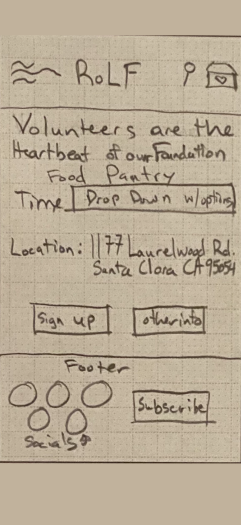 RoLF
Volunteers are the
Heartbeat of our Foundation
Food Pantry
Time Drop Down w/options
Location: 1177 Laurelwood Rd.
Santa Clara CA 95054
Sign up
other info
Footer
Subscribe
Socials